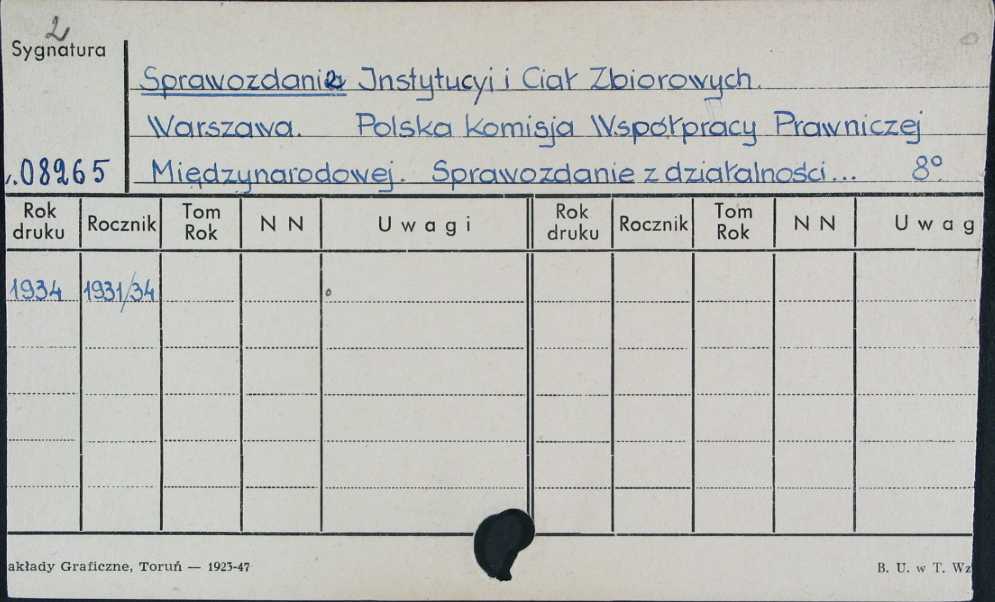 2
Sygnatura
Sprawozdania Instytucyi i Ciał Zbiorowych.
Warszawa. Polska Komisja Współpracy Prawniczej
08265 Międzynarodowej. Sprawozdanie z działalności... 8º
Rok druku Rocznik Tom Rok N N Uwagi Rok druku Rocznik Tom Rok N N Uwag
1934 1931/34
akłady Graficzne, Toruń — 1923-47 B. U. w T. Wz